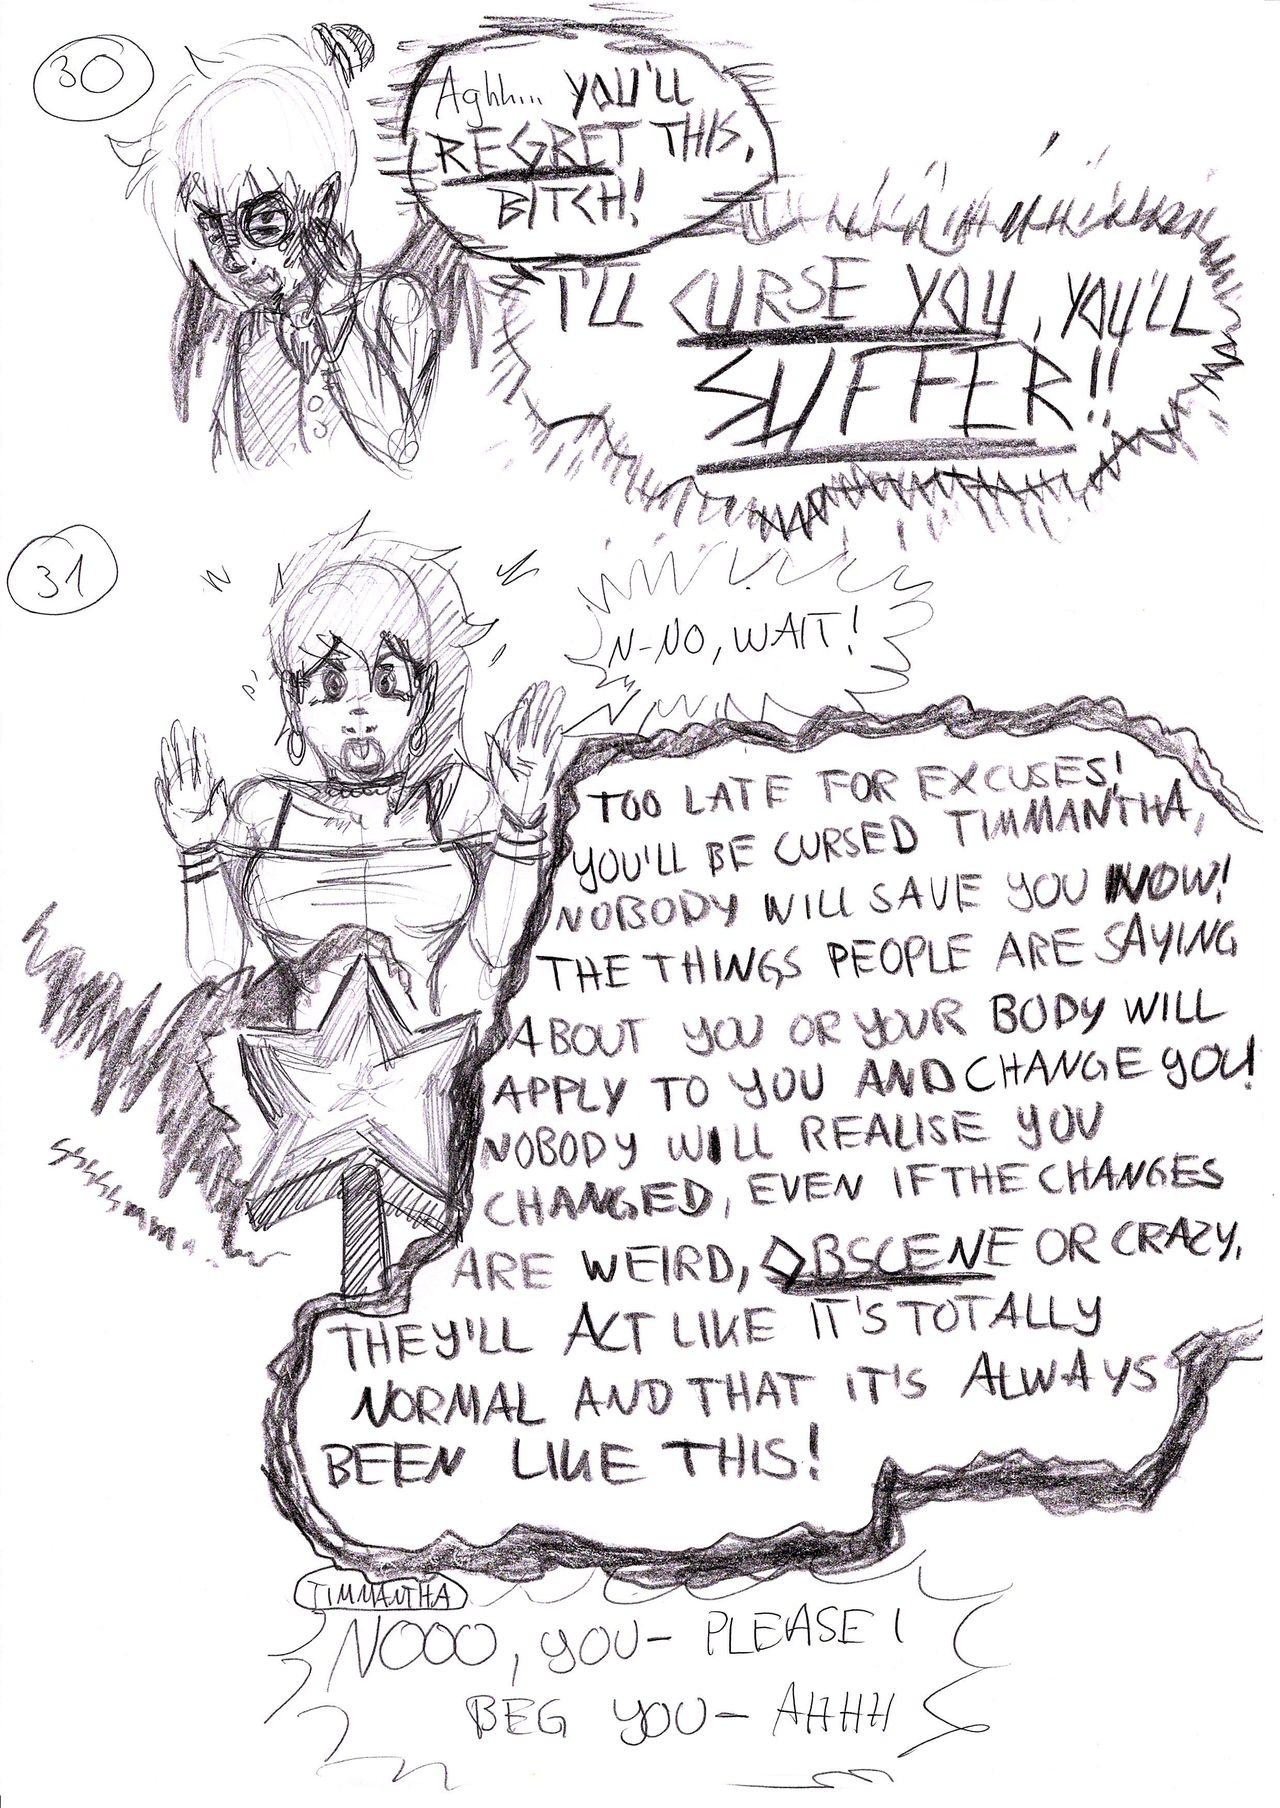 30
Aghh... YOU'LL
REGRET THIS,
BITCH!
I'LL CURSE YOU, YOU'LL
SUFFER!!
31
N-NO, WAIT!
TOO LATE FOR EXCUSES!
YOU'LL BE CURSED TIMMANTHA,
NOBODY WILL SAVE YOU NOW!
THE THINGS PEOPLE ARE SAYING
ABOUT YOU OR YOUR BODY WILL
APPLY TO YOU AND CHANGE YOU!
NOBODY WILL REALISE YOU
CHANGED, EVEN IF THE CHANGES
ARE WEIRD, OBSCENE OR CRAZY,
THEY'LL ACT LIKE IT'S TOTALLY
NORMAL AND THAT IT'S ALWAYS
BEEN LIKE THIS!
TIMMANTHA
NOOO, YOU- PLEASE I
BEG YOU- AHHH